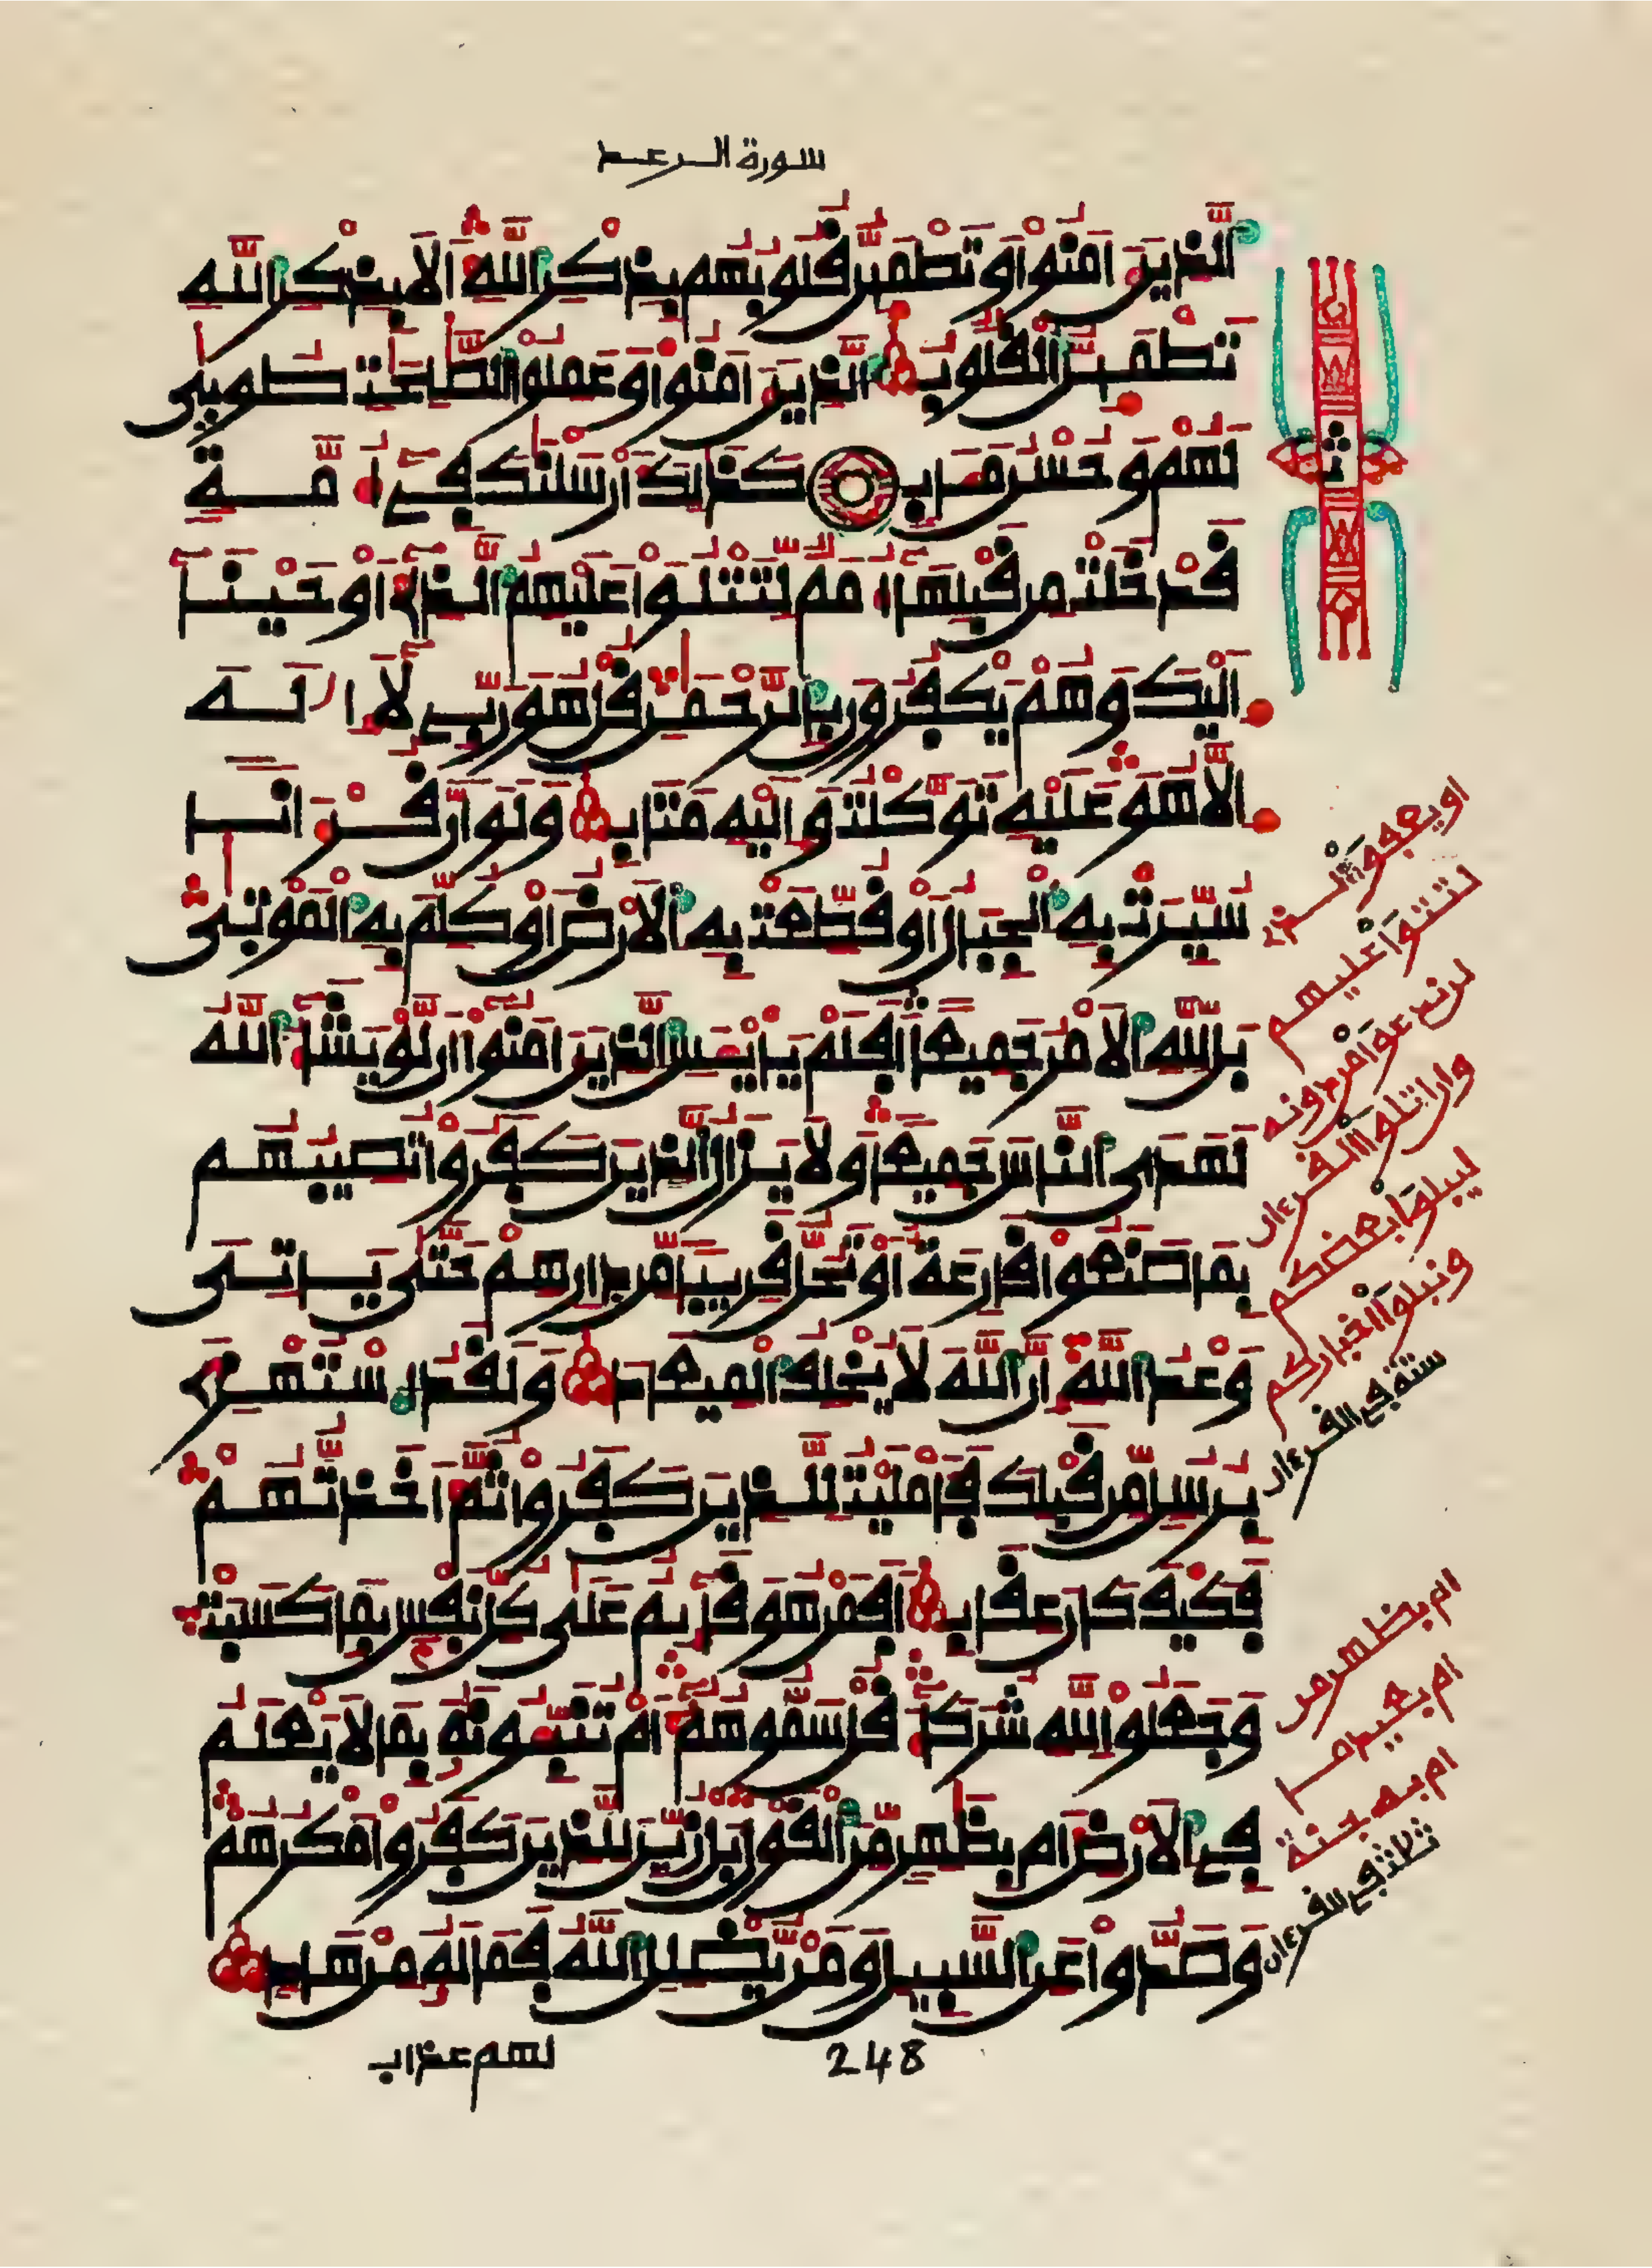 سورة الرعد
الذين ءامنوا وتطمئن قلوبهم بذكر الله ألا بذكر الله
تطمئن القلوب الذين ءامنوا وعملوا الصلحت طوبى
لهم وحسن مئاب كذلك أرسلنك في أمة
قد خلت من قبلها أمم لتتلوا عليهم الذي أوحينا
إليك وهم يكفرون بالرحمن قل هو ربي لا إله
إلا هو عليه توكلت وإليه متاب ولو أن قرءانا
سيرت به الجبال أو قطعت به الأرض أو كلم به الموتى
بل لله الأمر جميعا أفلم يايئس الذين ءامنوا أن لو يشاء الله
لهدى الناس جميعا ولا يزال الذين كفروا تصيبهم
بما صنعوا قارعة أو تحل قريبا من دارهم حتى ياتي
وعد الله إن الله لا يخلف الميعاد ولقد استهزئ
برسل من قبلك فأمليت للذين كفروا ثم أخذتهم
فكيف كان عقاب أفمن هو قائم على كل نفس بما كسبت
وجعلوا لله شركاء قل سموهم أم تنبئونه بما لا يعلم
في الأرض أم بظهر من القول بل زين للذين كفروا مكرهم
وصدوا عن السبيل ومن يضلل الله فما له من هاد
لهم عذاب
248
او يعفوا الذي
لتتلوا عليهم
لن ندعوا من دونه
وان اتلوا القرءان
ليبلوا بعضكم
ونبلوا اخباركم
ستة في القرءان
ام بظهر من
ام به جنة
ثلث في القرءان